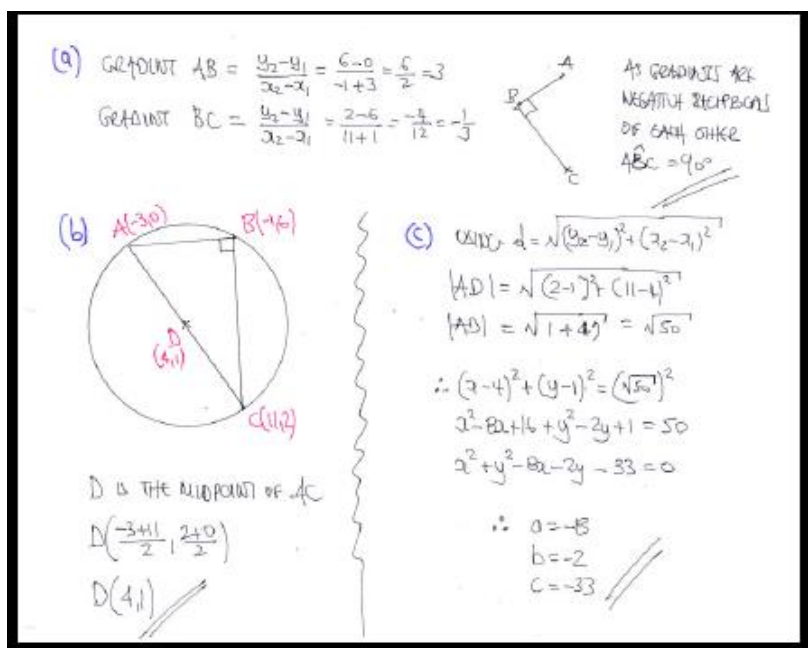 (a) GRADIENT AB = \frac{y_2-y_1}{x_2-x_1} = \frac{6-0}{-1+3} = \frac{6}{2} = 3
GRADIENT BC = \frac{y_2-y_1}{x_2-x_1} = \frac{2-6}{11+1} = \frac{-4}{12} = -\frac{1}{3}
A
B
C
AS GRADIENTS ARE
NEGATIVE RECIPROCALS
OF EACH OTHER
AB̂C = 90°
(b) A(-3,0) B(-1,6)
D
(4,1)
C(11,2)
D IS THE MIDPOINT OF AC
D(\frac{-3+11}{2}, \frac{2+0}{2})
D(4,1)
(c) USING d = \sqrt{(y_2-y_1)^2+(x_2-x_1)^2}
|AD| = \sqrt{(2-1)^2+(11-4)^2}
|AD| = \sqrt{1+49} = \sqrt{50}
∴ (x-4)^2+(y-1)^2 = (\sqrt{50})^2
x^2-8x+16+y^2-2y+1 = 50
x^2+y^2-8x-2y-33 = 0
∴ a = -8
b = -2
c = -33